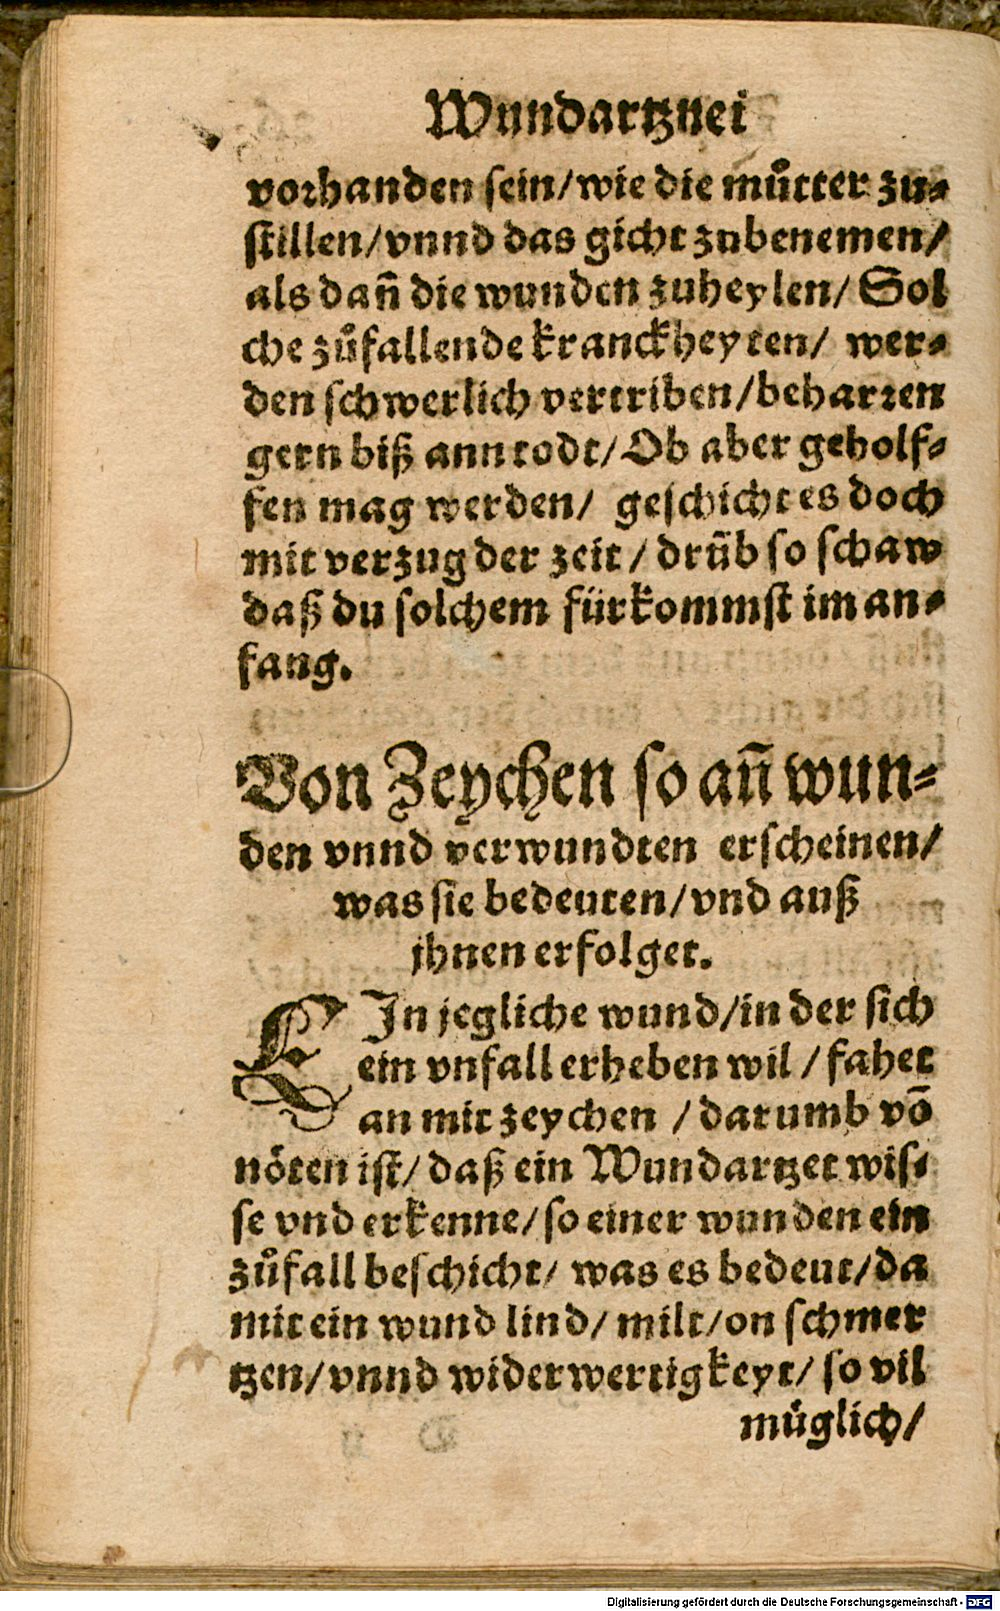 Wundartznei
vorhanden sein/wie die můtter zu-
stillen/vnnd das gicht zubenemen/
als dañ die wunden zuheylen/ Sol
che zůfallende kranckheyten/ wer-
den schwerlich vertriben/beharren
gern biß ann todt/ Ob aber geholf-
fen mag werden/ geschicht es doch
mit verzug der zeit / drüb so schaw
daß du solchem fürkommst im an-
fang.
Von Zeychen so añ wun-
den vnnd verwundten erscheinen/
was sie bedeuten/vnd auß
jhnen erfolget.
EIn jegliche wund/in der sich
ein vnfall erheben wil / fahet
an mit zeychen / darumb võ
nöten ist/ daß ein Wundartzet wis-
se vnd erkenne/so einer wunden ein
zůfall beschicht/ was es bedeut/da
mit ein wund lind/ milt/on schmer
tzen/vnnd widerwertigkeyt/ so vil
müglich/
Digitalisierung gefördert durch die Deutsche Forschungsgemeinschaft - DFG